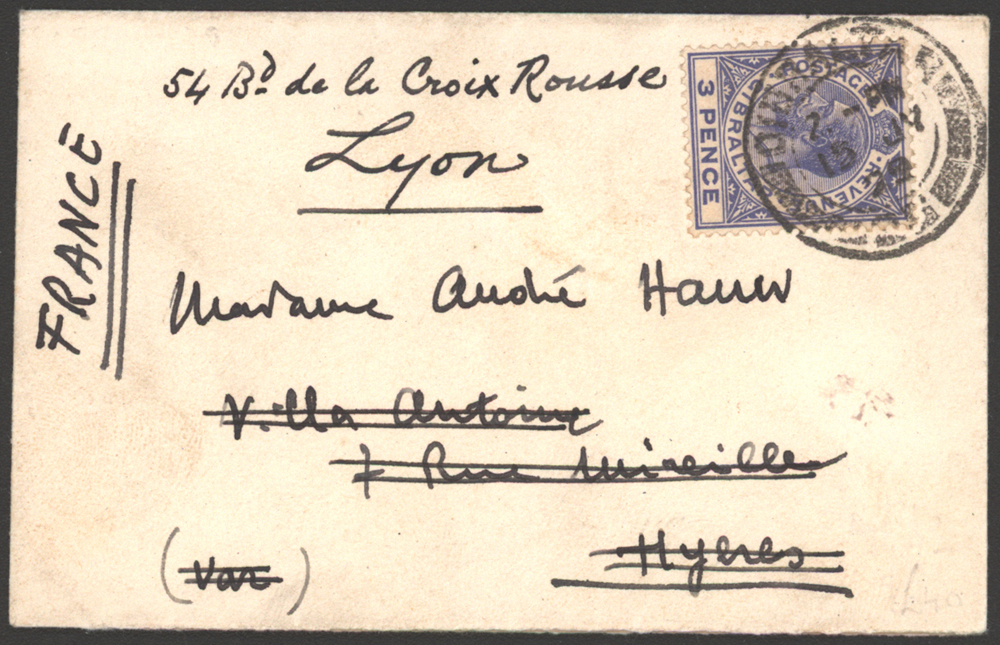 54 Bd de la Croix Rousse
Lyon
FRANCE
3 PENCE
POSTAGE & REVENUE
GIBRALTAR
15
Madame André
Villa Antoine
7 Rue Mireille
Hyeres
(Var)